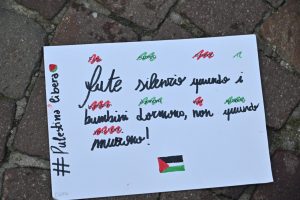 Fate silenzio quando i
bambini dormono, non quando
muoiono!
#Palestina libera